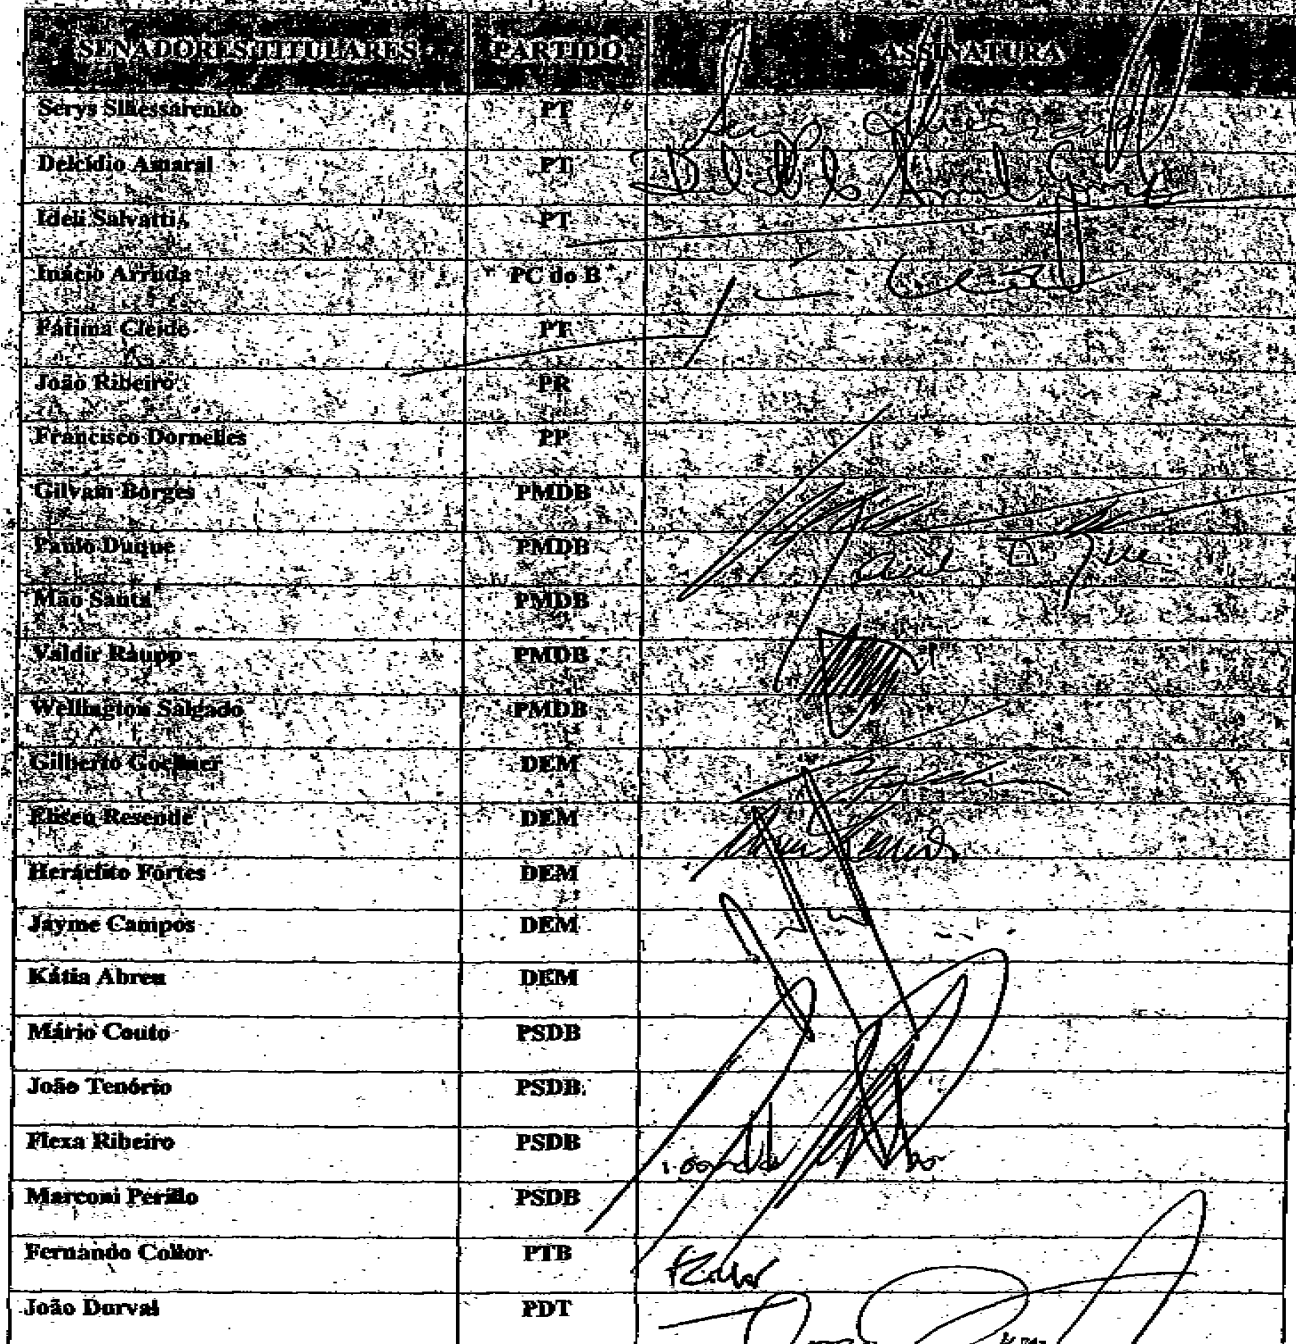 SENADORES TITULARES PARTIDO ASSINATURA
Serys Slhessarenko PT
Delcídio Amaral PT
Ideli Salvatti PT
Inácio Arruda PC do B
Fátima Cleide PT
João Ribeiro PR
Francisco Dornelles PP
Gilvam Borges PMDB
Paulo Duque PMDB
Mão Santa PMDB
Valdir Raupp PMDB
Wellington Salgado PMDB
Gilberto Goellner DEM
Eliseu Resende DEM
Heráclito Fortes DEM
Jayme Campos DEM
Kátia Abreu DEM
Mário Couto PSDB
João Tenório PSDB
Flexa Ribeiro PSDB
Marconi Perillo PSDB
Fernando Collor PTB
João Durval PDT